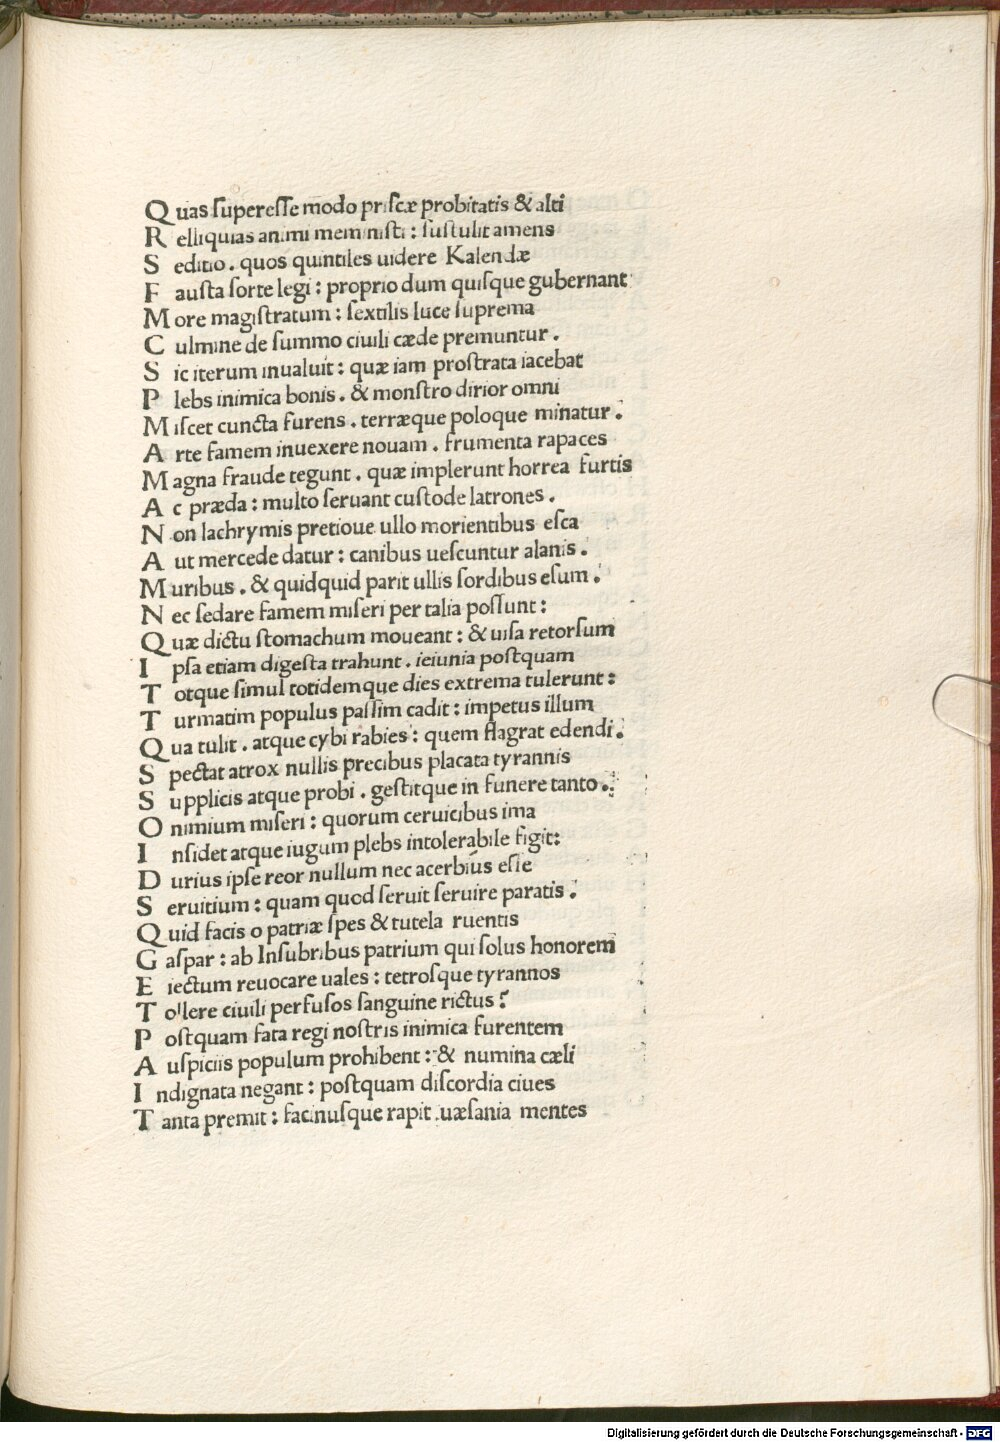 Quas ſupereſſe modo priſcæ probitatis & alti
Relliquias animi meminiſti : ſuſtulit amens
Seditio . quos quintiles uidere Kalendæ
Fauſta ſorte legi : proprio dum quiſque gubernant
More magiſtratum : ſextilis luce ſuprema
Culmine de ſummo ciuili cæde premuntur .
Sic iterum inualuit : quæ iam proſtrata iacebat
Plebs inimica bonis . & monſtro dirior omni
Miſcet cuncta furens . terræque poloque minatur .
Arte famem inuexere nouam . frumenta rapaces
Magna fraude tegunt . quæ implerunt horrea furtis
Ac præda : multo ſeruant cuſtode latrones .
Non lachrymis pretioue ullo morientibus eſca
Aut mercede datur : canibus ueſcuntur alanis .
Muribus . & quidquid parit ullis ſordibus eſum .
Nec ſedare famem miſeri per talia poſſunt :
Quæ dictu ſtomachum moueant : & uiſa retorſum
Ipſa etiam digeſta trahunt . ieiunia poſtquam
Totque ſimul totidemque dies extrema tulerunt :
Turmatim populus paſſim cadit : impetus illum
Qua tulit . atque cybi rabies : quem flagrat edendi .
Spectat atrox nullis precibus placata tyrannis
Supplicis atque probi . geſtitque in funere tanto .
O nimium miſeri : quorum ceruicibus ima
Inſidet atque iugum plebs intolerabile figit :
Durius ipſe reor nullum nec acerbius eſſe
Seruitium : quam quod ſeruit ſeruire paratis .
Quid facis o patriæ ſpes & tutela ruentis
Gaſpar : ab Inſubribus patrium qui ſolus honorem
Eiectum reuocare uales : tetroſque tyrannos
Tollere ciuili perfuſos ſanguine rictus ?
Poſtquam fata regi noſtris inimica furentem
Auſpiciis populum prohibent : & numina cæli
Indignata negant : poſtquam diſcordia ciues
Tanta premit : facinuſque rapit uæſania mentes
Digitalisierung gefördert durch die Deutsche Forschungsgemeinschaft - DFG